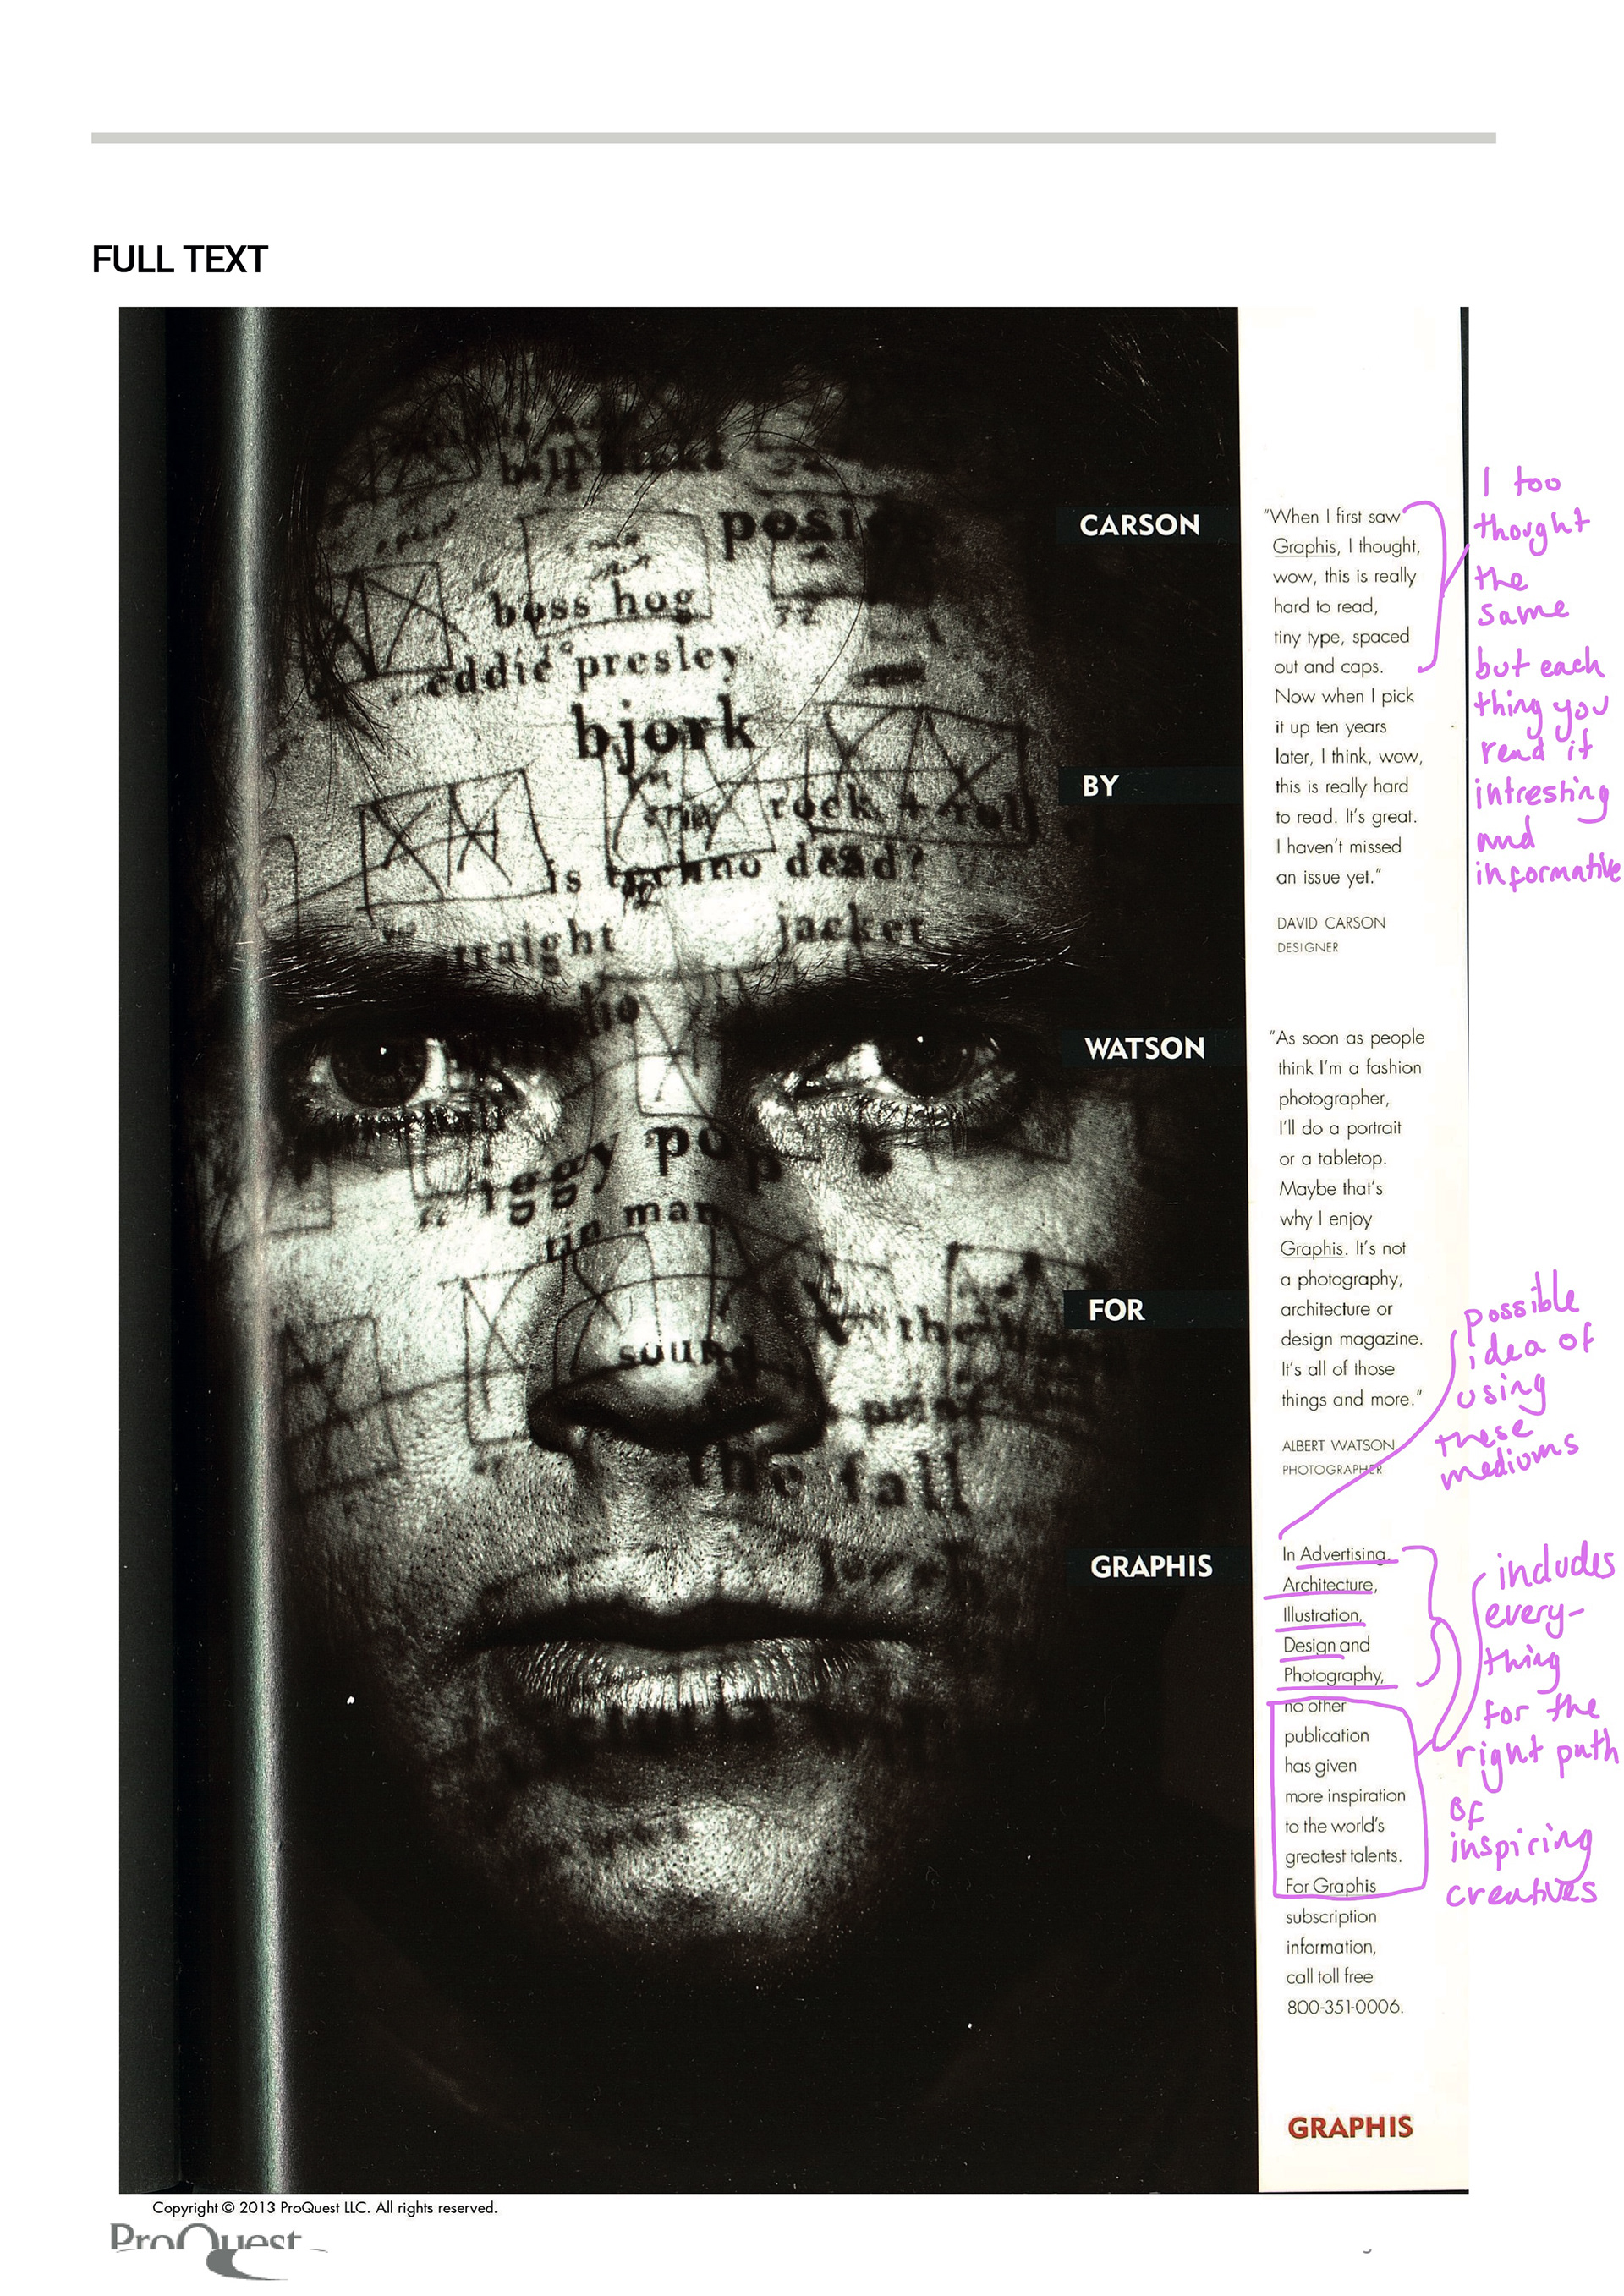 FULL TEXT
posi
boss hog
eddie presley
bjork
rock + roll
is techno dead?
traight jacket
iggy pop
tin man
sound
the fall
CARSON
BY
WATSON
FOR
GRAPHIS
“When I first saw
Graphis, I thought,
wow, this is really
hard to read,
tiny type, spaced
out and caps.
Now when I pick
it up ten years
later, I think, wow,
this is really hard
to read. It’s great.
I haven’t missed
an issue yet.”
DAVID CARSON
DESIGNER
“As soon as people
think I’m a fashion
photographer,
I’ll do a portrait
or a tabletop.
Maybe that’s
why I enjoy
Graphis. It’s not
a photography,
architecture or
design magazine.
It’s all of those
things and more.”
ALBERT WATSON
PHOTOGRAPHER
In Advertising,
Architecture,
Illustration,
Design and
Photography,
no other
publication
has given
more inspiration
to the world’s
greatest talents.
For Graphis
subscription
information,
call toll free
800-351-0006.
GRAPHIS
I too
thought
the
same
but each
thing you
read if
intresting
and
informative
possible
idea of
using
these
mediums
includes
every-
thing
for the
right path
of
inspiring
creatives
Copyright © 2013 ProQuest LLC. All rights reserved.
ProQuest